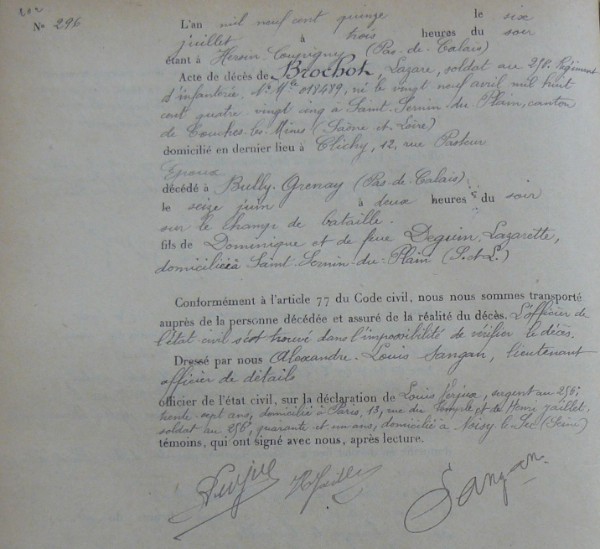 N° 296
L'an mil neuf cent quinze le six
juillet à trois heures du soir
étant à Hersin-Coupigney (Pas-de-Calais)
Acte de décès de Brochot, Lazare, soldat au 256e Régiment
d'infanterie, N° Mle 018689, né le vingt neuf avril mil huit
cent quatre vingt cinq à Saint-Sernin-du-Plain, canton
de Couches-les-Mines (Saône-et-Loire)
domicilié en dernier lieu à Clichy, 12, rue Pasteur
Epoux
décédé à Bully-Grenay (Pas-de-Calais)
le seize juin à deux heures du soir
sur le champ de bataille.
fils de Dominique et de feue Deguin, Lazarette,
domiciliés à Saint-Sernin-du-Plain (S.et L.)
Conformément à l'article 77 du Code civil, nous nous sommes transporté
auprès de la personne décédée et assuré de la réalité du décès. L'officier de
l'état civil s'est trouvé dans l'impossibilité de vérifier le décès.
Dressé par nous Alexandre-Louis Sangan, lieutenant
officier de détails
officier de l'état civil, sur la déclaration de Louis sergent au 256e,
trente-sept ans, domicilié à Paris, 13, rue du Temple et de Henri
soldat au 256e, quarante et un ans, domicilié à Noisy-le-Sec (Seine)
témoins, qui ont signé avec nous, après lecture.
Sangan